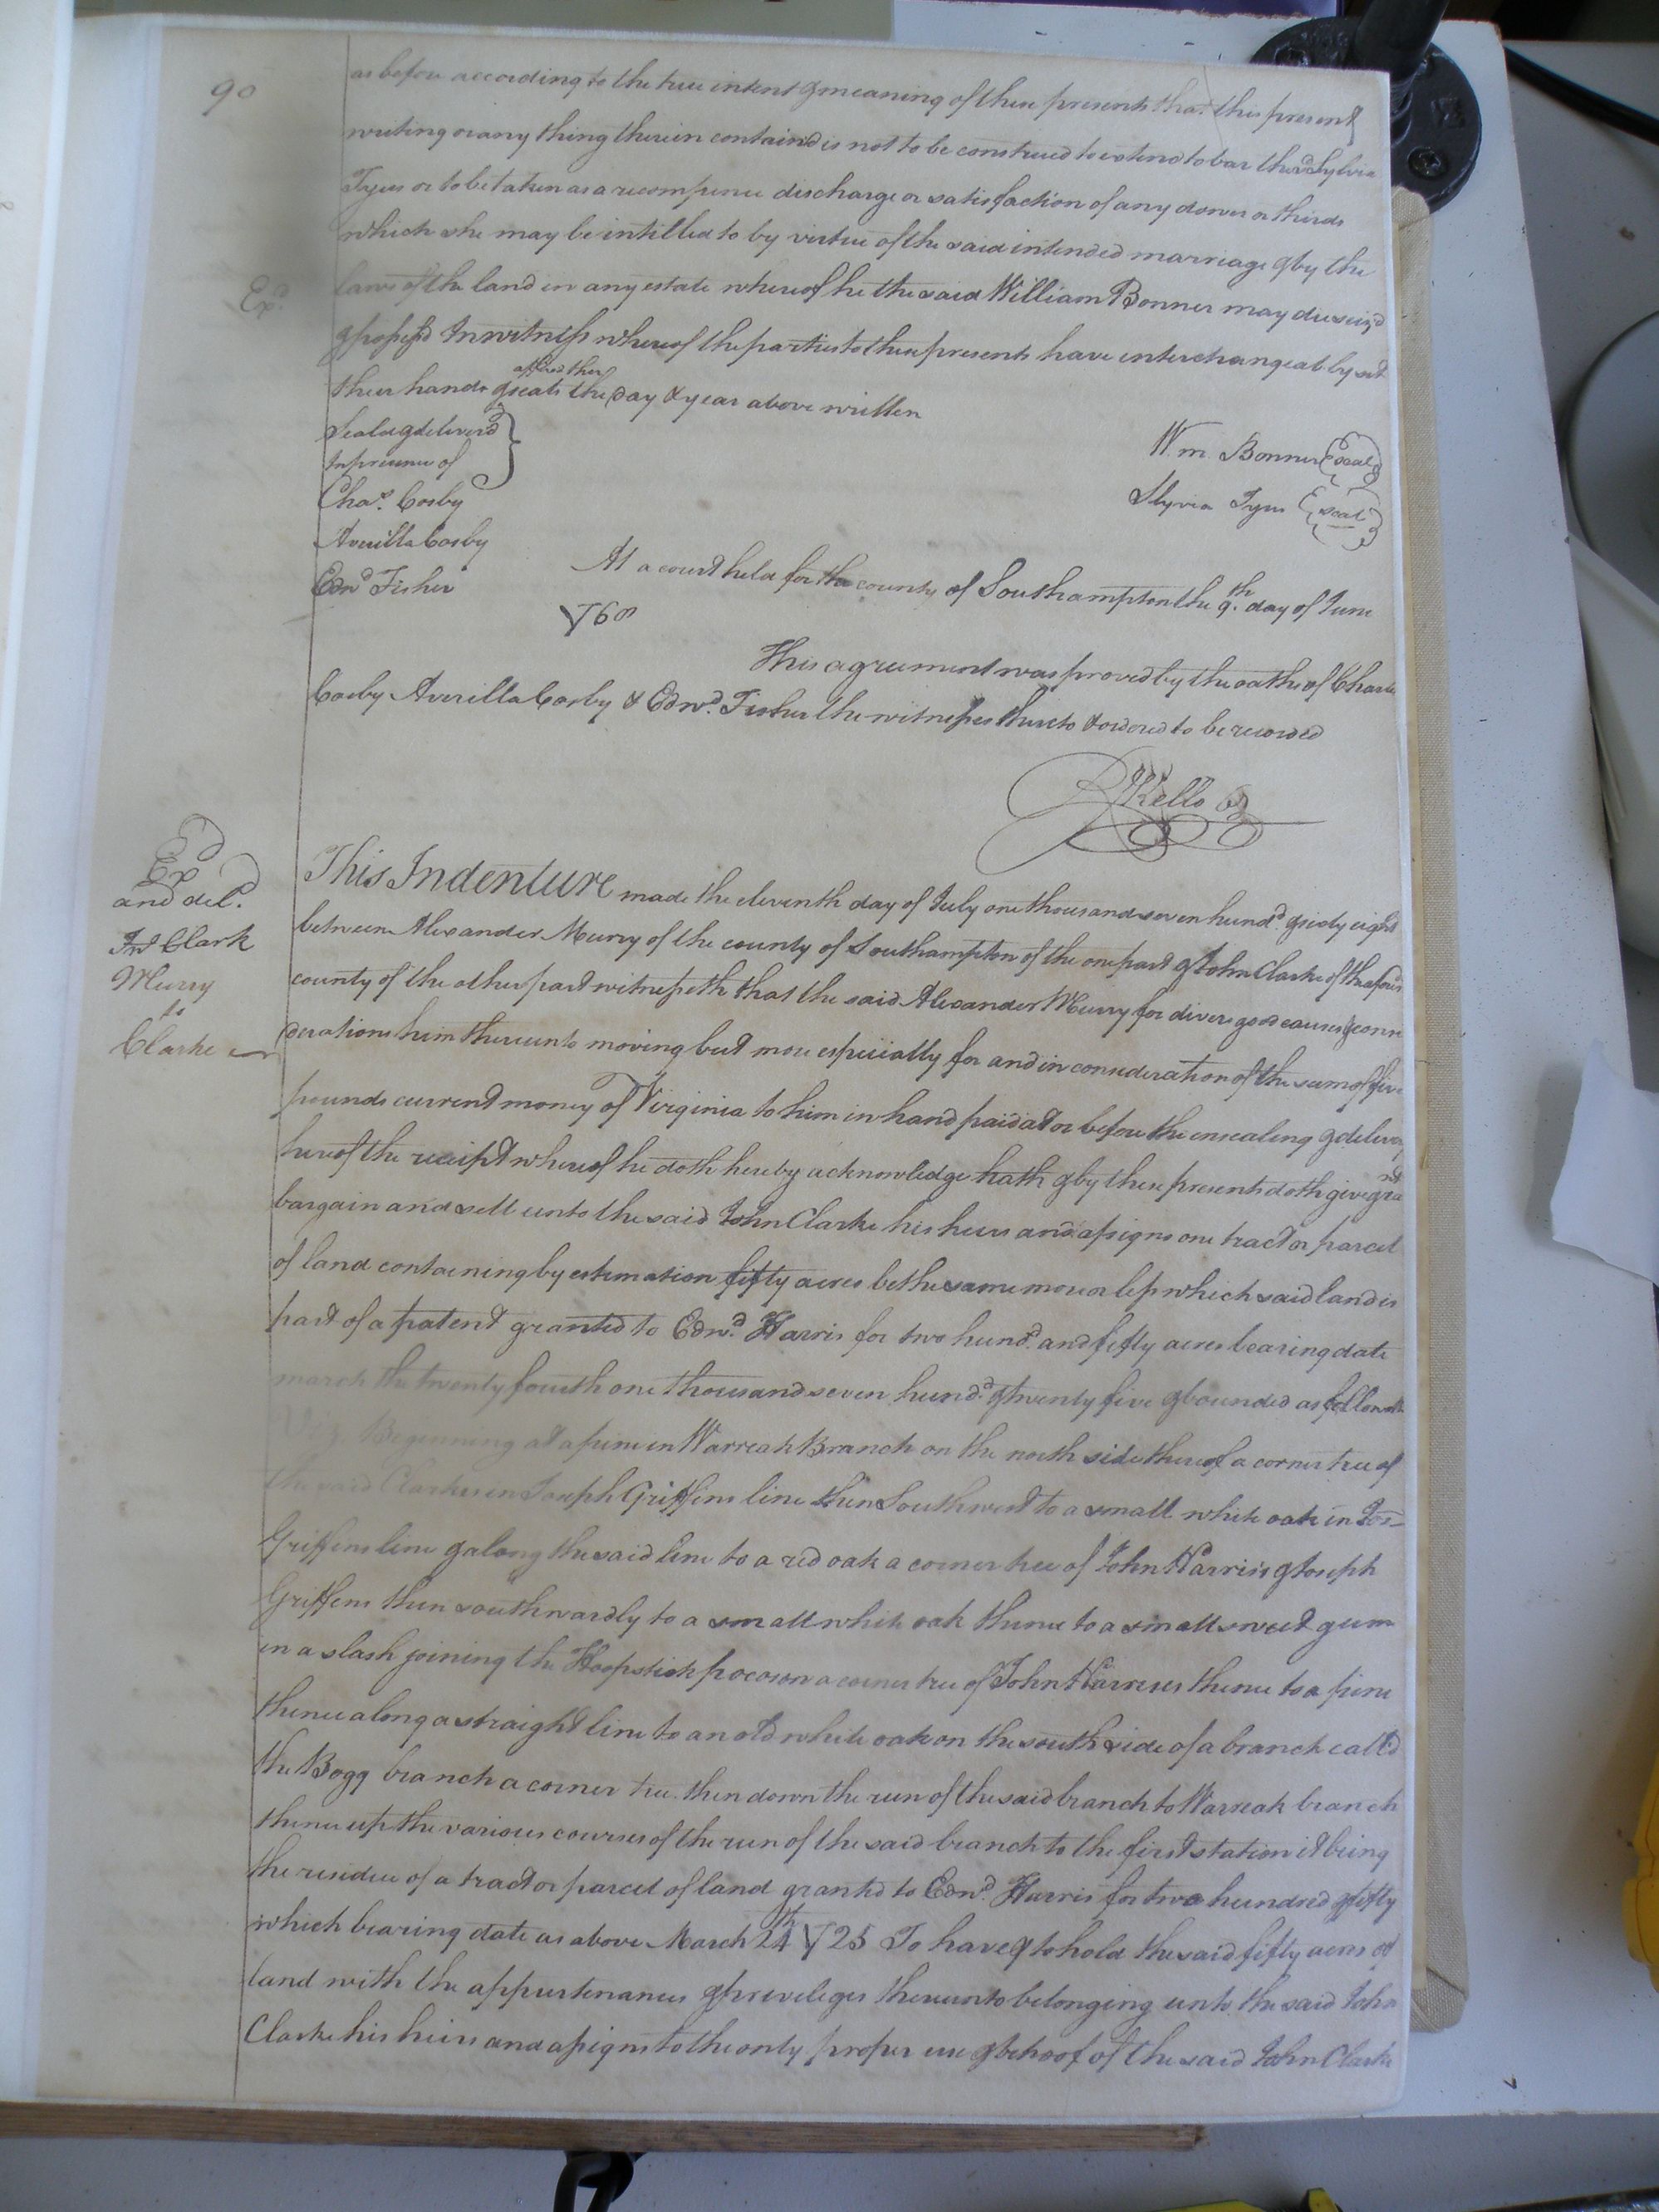 90
as before according to the true intent & meaning of these presents that this present
writing or any thing therein containd is not to be construed to extend to bar the sd Sylvia
Tyus or to be taken as a recompence discharge or satisfaction of any dower or thirds
which she may be intitled to by virtue of the said intended marriage & by the
Exd
laws of the land in any estate whereof he the said William Bonner may die seizd
& possessd In witness whereof the parties to these presents have interchangeably set
their hands & affixed their seals the day & year above written
Sealed & deliverd
In presence of
Wm. Bonner {seal}
Slyvia Tyus {seal}
Chas. Cosby
Averilla Cosby
Edwd Fisher
At a court held for the county of Southampton the 9th. day of June
1768
This agreement was proved by the oaths of Charles
Cosby Averilla Cosby & Edwd. Fisher the witnesses thereto & ordered to be recorded
R Kello
Exd
and deld.
Jno Clark
Murry
to
Clarke
This Indenture made the eleventh day of July one thousand seven hundd. & sixty eight
between Alexander Murry of the county of Southampton of the one part & John Clarke of the aforesd
county of the other part witnesseth that the said Alexander Murry for divers good causes & consi
derations him thereunto moving but more especially for and in consideration of the sum of five
pounds current money of Virginia to him in hand paid at or before the ensealing & delivery
hereof the receipt whereof he doth hereby acknowledge hath & by these presents doth give grant
bargain and sell unto the said John Clarke his heirs and assigns one tract or parcel
of land containing by estimation fifty acres be the same more or less which said land is
part of a patent granted to Edwd. Harris for two hundd. and fifty acres bearing date
march the twenty fourth one thousand seven hundd. & twenty five & bounded as followeth
Viz. Beginning at a pine in Warreak Branch on the north side thereof a corner tree of
the said Clarkes in Joseph Griffins line then Southwest to a small white oak in Jos
Griffins line & along the said line to a red oak a corner tree of John Harris's & Joseph
Griffens then southwardly to a small white oak thence to a small sweet gum
in a slash joining the Hoopstick pocoson a corner tree of John Harrises thence to a pine
thence along a straight line to an old white oak on the south side of a branch calld
the Bogg branch a corner tree then down the run of the said branch to Warreak branch
thence up the various courses of the run of the said branch to the first station it being
the residue of a tract or parcel of land granted to Edwd. Harris for two hundred & fifty
which bearing date as above March 24th 1725 To have & to hold the said fifty acres of
land with the appurtenances & priveleges thereunto belonging unto the said John
Clarke his heirs and assigns to the only proper use & behoof of the said John Clarke